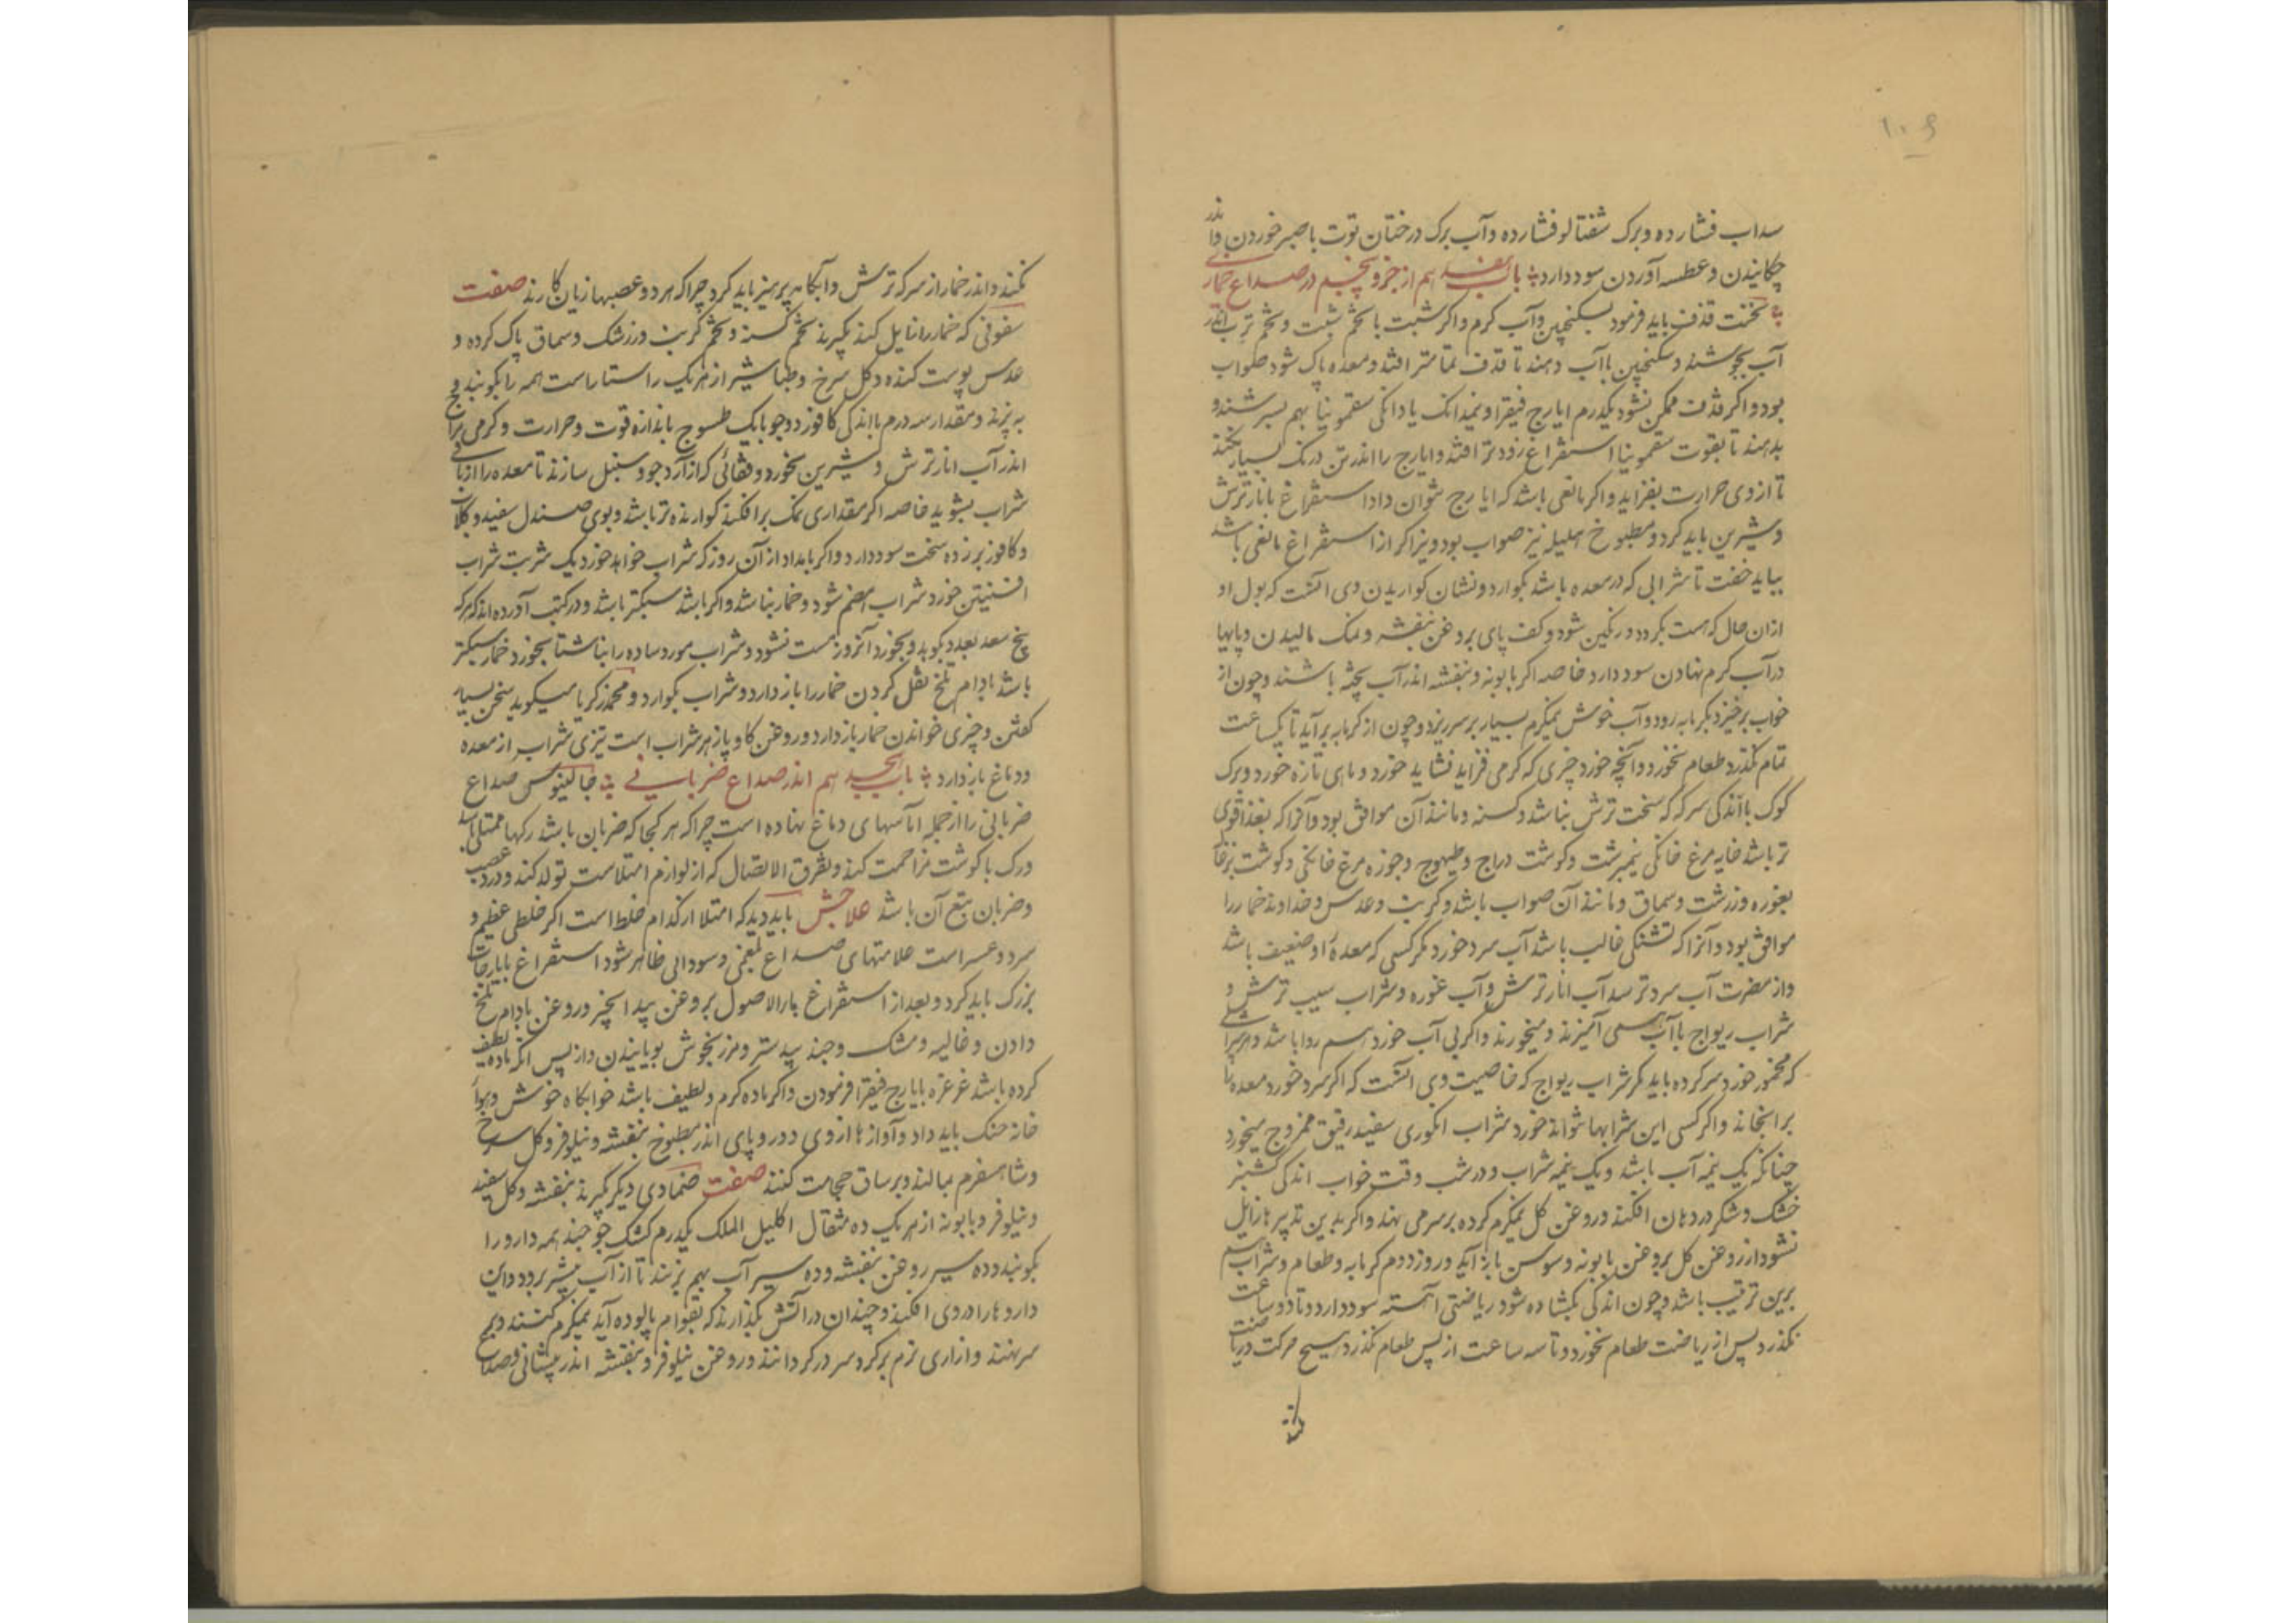 ۱۰۶
سداب فشارده و برک شفتالو فشارده و آب برک درختان توت با صبر خوردن و اندر
چکانیدن و عطسه آوردن سود دارد باب هفدهم از جزو پنجم در صداع خمار
نخست قذف باید فرمود بسکنجبین و آب کرم و اکر شبت با تخم شبت و تخم ترب اندر
آب بجوشند و سکنجبین با آب دهند تا قذف تمامتر افتد و معده پاک شود صواب
بود و اکر قذف ممکن نشود یکدرم ایارج فیقرا و نیمدانک یا دانکی سقمونیا بهم بسرشند و
بدهند تا بقوت سقمونیا استفراغ زودتر افتد و ایارج را اندر تن درنک بسیار نکند
تا از وی حرارت بفزاید و اکر مانعی باشد که ایارج نتوان داد استفراغ بانار ترش
و شیرین باید کرد و مطبوخ هلیله نیز صواب بود و نیز اکر از استفراغ مانعی باشد
بباید خفت تا شرابی که در معده باشد بکوارد و نشان کواریدن وی آنست که بول او
ازان حال که هست بکردد و رنکین شود و کف پای بروغن بنفشه و نمک مالیدن و پایها
در آب کرم نهادن سود دارد خاصه اکر بابونه و بنفشه اندر آب پخته باشند و چون از
خواب برخیزد بکرمابه رود و آب خوش نیمکرم بسیار بر سر ریزد و چون از کرمابه برآید تا یکساعت
تمام نکذرد طعام نخورد و آنچه خورد چیزی که کرمی فزاید نشاید خورد و ماهی تازه خورد و برک
کوک با اندکی سرکه که سخت ترش نباشد و کسنه و مانند آن موافق بود و آنرا که بغذا قوی
تر باشد خایه مرغ خانکی نیمبرشت و کوشت دراج و طیهوج و جوزه مرغ خانکی و کوشت بزغا
بغوره و زرشت و سماق و مانند آن صواب باشد و کرنب و عدس خداوند خمار را
موافق بود و آنرا که تشنکی غالب باشد آب سرد خورد مکر کسی که معده او ضعیف باشد
و از مضرت آب سرد ترسد آب انار ترش و آب غوره و شراب سیب ترش و
شراب ریواج با آب همی آمیزند و میخورند و اکر بی آب خورد هم روا باشد و هر شرابی
که مخمور خورد سرد کرده باید مکر شراب ریواج که خاصیت وی آنست که اکر سرد خورد معده را
برانجاند و اکر کسی این شرابها نتواند خورد شراب انکوری سفید رقیق ممزوج میخورد
چنانکه یک نیمه آب باشد و یک نیمه شراب و در شب وقت خواب اندکی کشنیز
خشک و شکر در دهان افکند و روغن کل نیمکرم کرده بر سر می نهند و اکر بدین تدبیرها زایل
نشود از روغن کل بروغن بابونه و سوسن باز آید و روز دوم کرمابه و طعام و شراب هم
برین ترتیب باشد و چون اندکی کشاده شود ریاضتی آهسته سود دارد و تا دو ساعت
نکذرد پس از ریاضت طعام نخورد و تا سه ساعت از پس طعام نکذرد هیچ حرکت و ریاضت
نکنند
نکنند و اندر خمار از سرکه ترش و آبکامه پرهیز باید کرد چراکه هر دو عصبها زیان کارند صفت
سفوفی که خمار را زایل کند بکیرند تخم کسنه و تخم کرنب و زرشک و سماق پاک کرده و
عدس پوست کنده و کل سرخ و طباشیر از هر یک راستا راست همه را بکوبند و
بپزند و مقدار سه درم با اندکی کافور دو جو یا یک طسوج باندازه قوت و حرارت و کرمی مزاج
اندر آب انار ترش و شیرین بخورد و فقاعی که از آرد جو و سنبل سازند تا معده را از باقی
شراب بشوید خاصه اکر مقداری نمک برافکند کوارنده تر باشد و بوی صندل سفید و کلاب
و کافور بر زده سخت سود دارد و اکر بامداد از آن روز که شراب خواهد خورد یک شربت شراب
افسنتین خورد شراب هضم شود و خمار نباشد و اکر باشد سبکتر باشد و در کتب آورده اند که هر که
بیخ سعد بعدد بکوید و بخورد آنروز مست نشود و شراب مورد ساده را بناشتا بخورد خمار سبکتر
باشد بادام تلخ نقل کردن خمار را باز دارد و شراب بکوارد و محمد زکریا میکوید سخن بسیار
کفتن و چیزی خواندن خمار باز دارد و روغن کاو پازهر شراب است تیزی شراب از معده
و دماغ باز دارد باب هجدهم اندر صداع ضربانی جالینوس صداع
ضربانی را از جمله آماسهای دماغ نهاده است چراکه هر کجا که ضربان باشد رکها ممتلی باشد
و رک با کوشت مزاحمت کند و تفرق الاتصال که از لوازم امتلاست تولد کند و درد عصب
و ضربان تبع آن باشد علاجش باید دید که امتلا از کدام خلط است اکر خلطی عظیم و
سرد و عسر است علامتهای صداع بلغمی و سودائی ظاهر شود استفراغ بایارجات
بزرک باید کرد و بعد از استفراغ ماءالاصول بروغن بیدانجیر و روغن بادام تلخ
دادن و غالیه و مشک و جند بیدستر و مرزنجوش بویانیدن و از پس آنکه ماده لطیف
کرده باشد غرغره بایارج فیقرا فرمودن و اکر ماده کرم و لطیف باشد خوابکاه خوش و هوا
خانه خنک باید داد و آوازها از وی دور و پای اندر مطبوخ بنفشه و نیلوفر و کل سرخ
و شاهسفرم بمالند و بر ساق حجامت کنند صفت ضمادی دیکر بکیرند بنفشه و کل سفید
و نیلوفر و بابونه از هر یک ده مثقال اکلیل الملک یکدرم کشک جو چند همه دارو را
بکوبند و ده سیر روغن بنفشه و ده سیر آب بهم بزنند تا از آب بیشتر برود و این
داروها را در وی افکند و چندان در آتش بکذارند که بقوام پالوده آید نیمکرم کنند و بر
سر نهند و ازاری نرم برکرد سر در کردانند و روغن نیلوفر و بنفشه اندر پیشانی و صداع